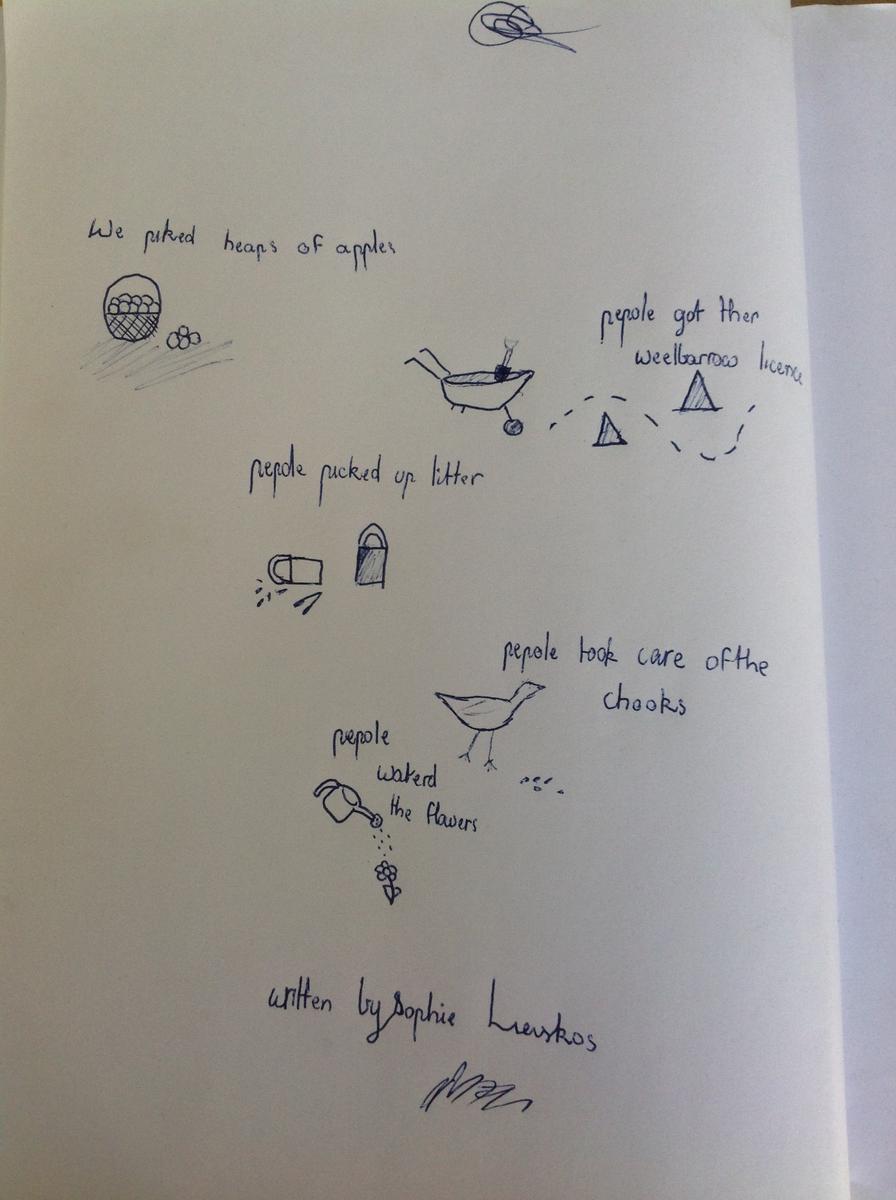 We piked heaps of apples
pepole got ther
weelbarrow licence
pepole picked up litter
pepole took care of the
chooks
pepole
waterd
the flawers
written by Sophie